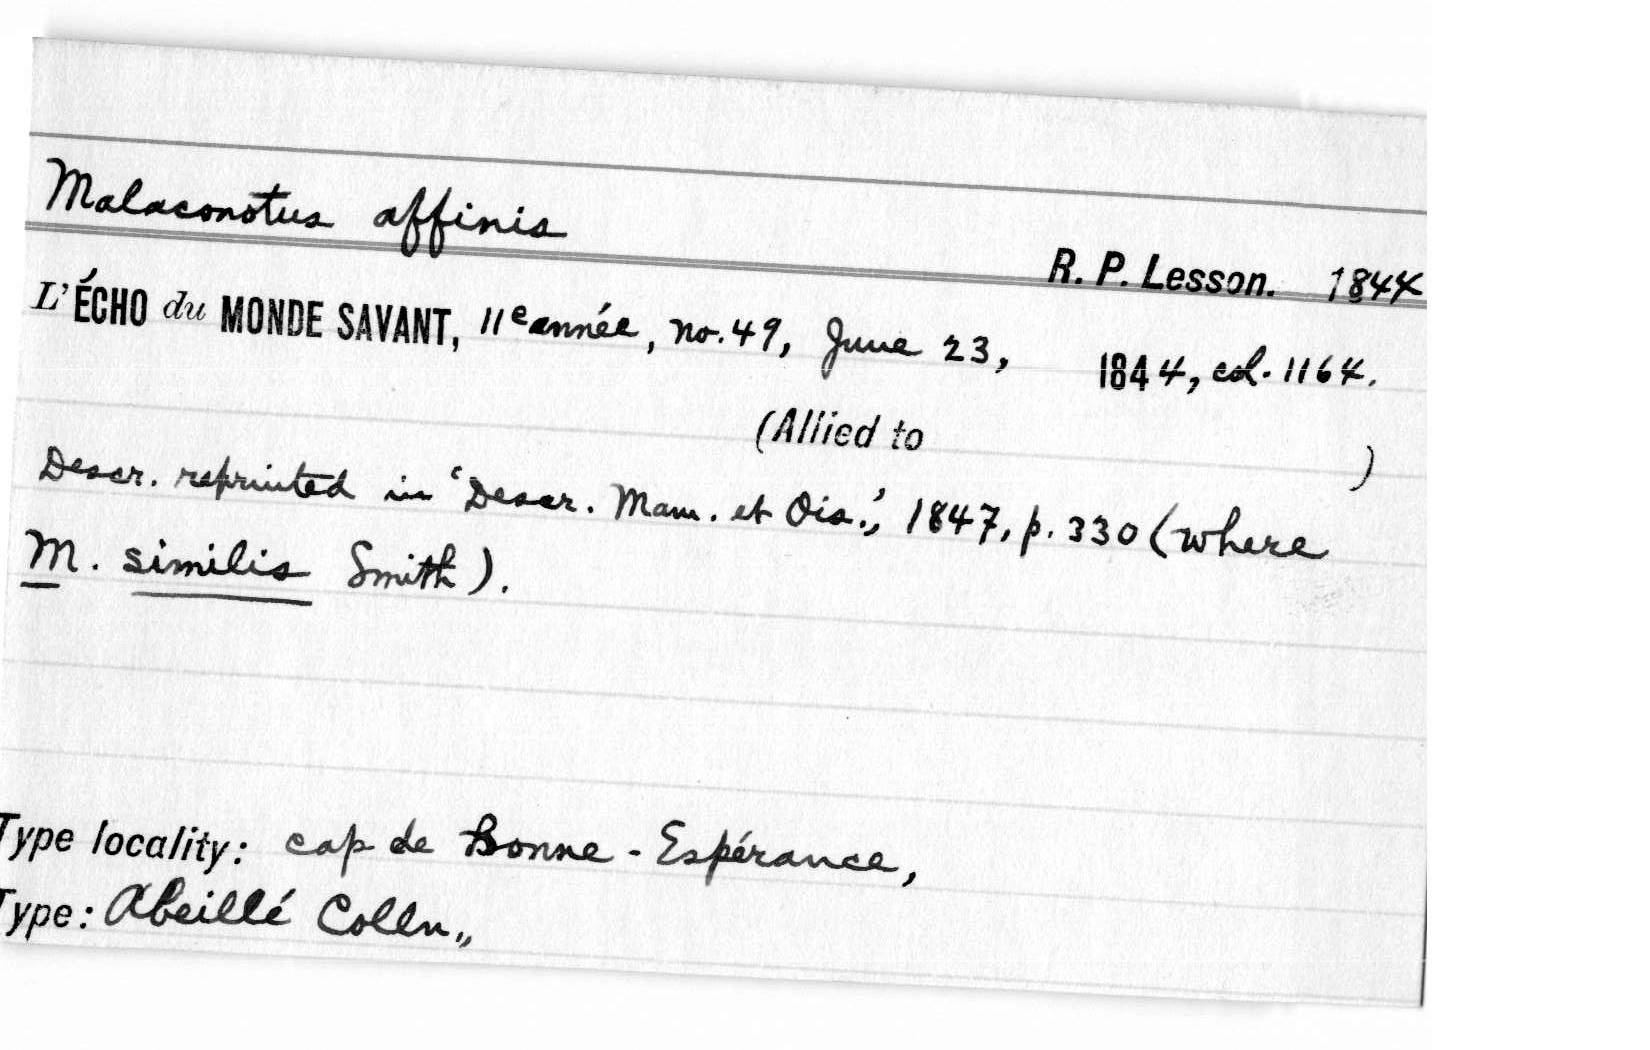 Malaconotus affinis
R. P. Lesson. 1844
L'ÉCHO du MONDE SAVANT, 11e année, no. 49, June 23, 1844, col. 1164.
(Allied to )
Descr. reprinted in 'Descr. Mam. et Ois.', 1847, p. 330 (where
M. similis Smith).
Type locality: cap de Bonne-Espérance,
Type: Abeillé Colln.,